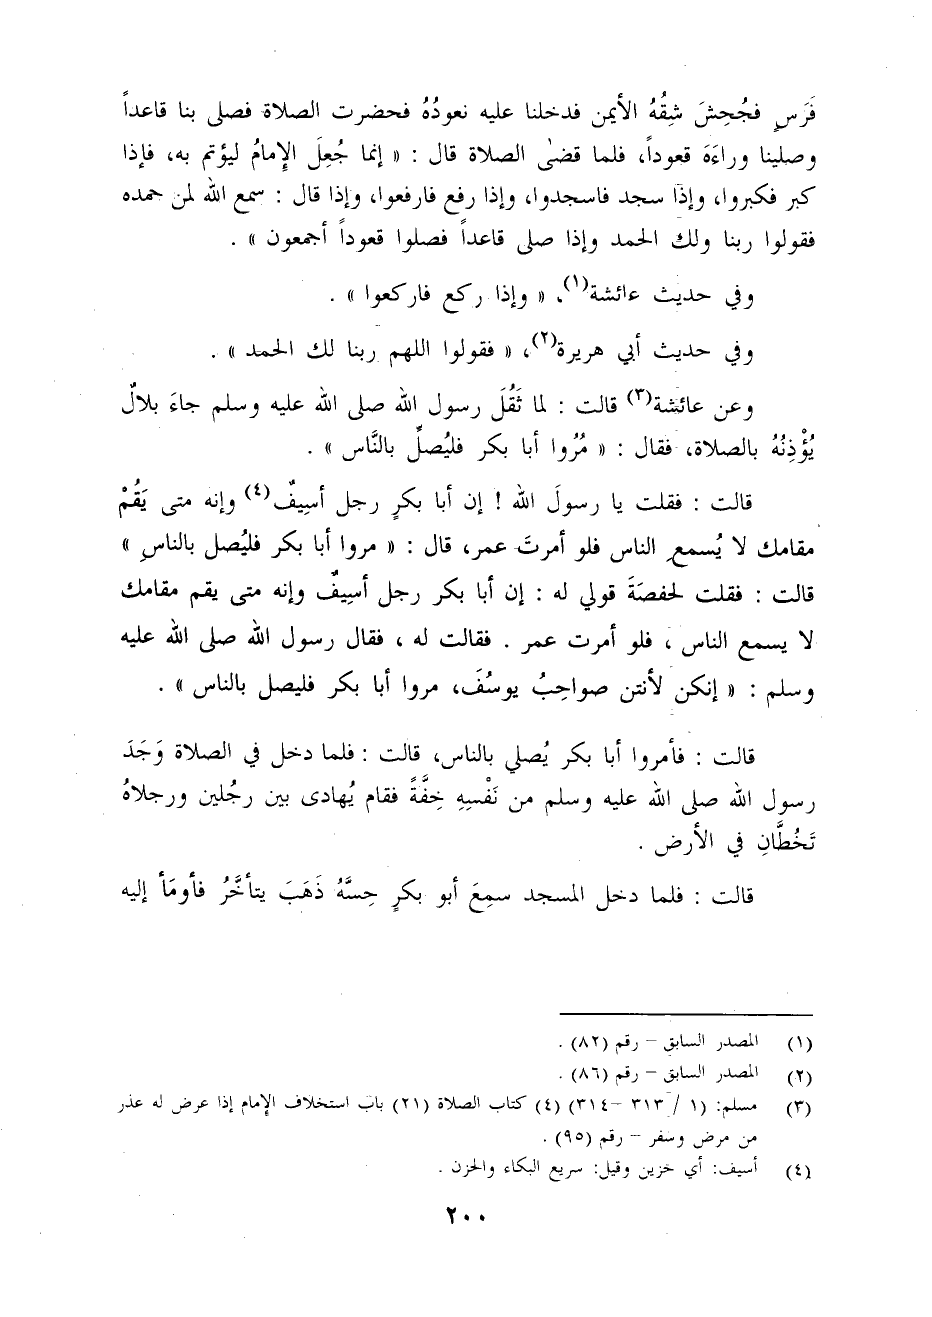 فَرَسٍ فجُحِشَ شِقُهُ الأيمن فدخلنا عليه نعودُهُ فحضرت الصلاة فصلى بنا قاعداً
وصلينا وراءَهَ قعوداً، فلما قضىٰ الصلاة قال : « إنما جُعِلَ الإِمامُ ليؤتم به، فإذا
كبر فكبروا، وإذا سجد فاسجدوا، وإذا رفع فارفعوا، وإذا قال : سمع الله لمن حمده
فقولوا ربنا ولك الحمد وإذا صلى قاعداً فصلوا قعوداً أجمعون » .
وفي حديث عائشة(١)، « وإذا ركع فاركعوا » .
وفي حديث أبي هريرة(٢)، « فقولوا اللهم ربنا لك الحمد » .
وعن عائشة(٣) قالت : لما ثَقُلَ رسول الله صلى الله عليه وسلم جاءَ بلالٌ
يُؤْذِنُهُ بالصلاة، فقال : « مُرُوا أبا بكر فليُصلِّ بالنَّاس » .
قالت : فقلت يا رسولَ الله ! إن أبا بكرٍ رجل أسِيفٌ(٤) وإنه متى يَقُمْ
مقامك لا يُسمعِ الناس فلو أمرتَ عمر، قال : « مروا أبا بكر فليُصل بالناسِ »
قالت : فقلت لحفصةَ قولي له : إن أبا بكر رجل أسِيفٌ وإنه متى يقم مقامك
لا يسمع الناس ، فلو أمرت عمر . فقالت له ، فقال رسول الله صلى الله عليه
وسلم : « إنكن لأنتن صواحِبُ يوسُفَ، مروا أبا بكر فليصل بالناس » .
قالت : فأمروا أبا بكر يُصلي بالناس، قالت : فلما دخل في الصلاة وَجَدَ
رسول الله صلى الله عليه وسلم من نَفْسِهِ خِفَّةً فقام يُهادى بين رجُلين ورجلاهُ
تَخُطَّانِ في الأرض .
قالت : فلما دخل المسجد سمِعَ أبو بكرٍ حِسَّهُ ذَهَبَ يتأخَّرُ فأومَأ إليه
(١) المصدر السابق – رقم (٨٢) .
(٢) المصدر السابق – رقم (٨٦) .
(٣) مسلم: (١ / ٣١٣ – ٣١٤) (٤) كتاب الصلاة (٢١) باب استخلاف الإمام إذا عرض له عذر
من مرض وسفر – رقم (٩٥) .
(٤) أسيف: أي حزين وقيل: سريع البكاء والحزن .
٢٠٠